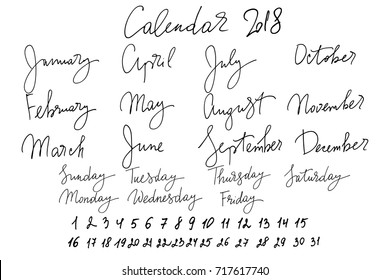 Calendar 2018
January April July October
February May August November
March June September December
Sunday Tuesday Thursday Saturday
Monday Wednesday Friday
1 2 3 4 5 6 7 8 9 10 11 12 13 14 15
16 17 18 19 20 21 22 23 24 25 26 27 28 29 30 31
shutterstock.com · 717617740